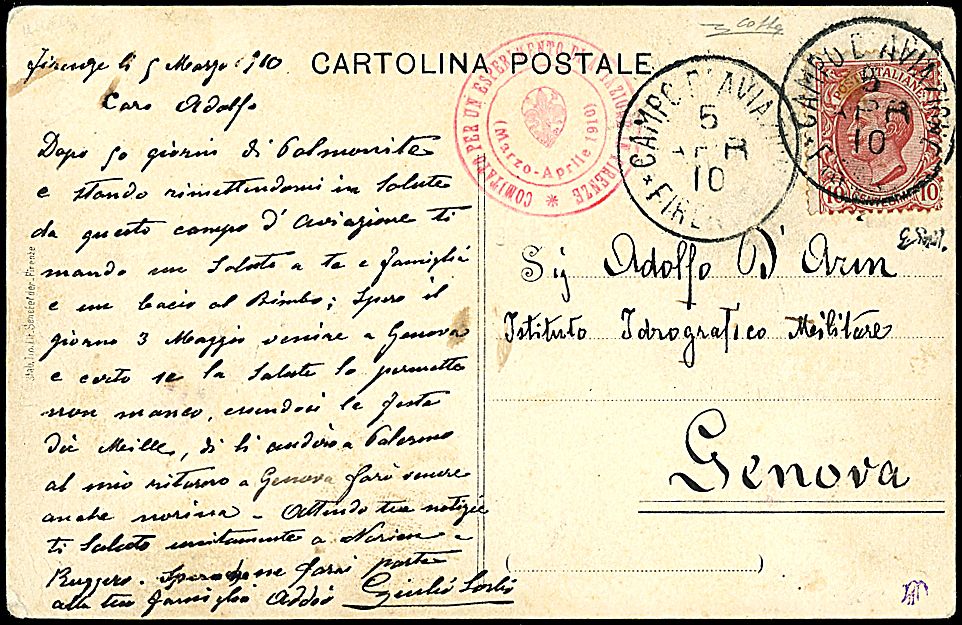 CARTOLINA POSTALE
Firenze li 5 Marzo 910
Caro Adolfo
Dopo 50 giorni di Polmonite
e stando rimettendomi in Salute
da questo campo d'Aviazione ti
mando un Saluto a te e famiglia
e un bacio al Bimbo; Spero il
giorno 3 Maggio venire a Genova
e certo se la Salute lo permette
non manco, essendoci la festa
dei Mille, di li andrò a Palermo
al mio ritorno a Genova farò venire
anche - Attendo tue notizie
ti Saluto unitamente a e
Ruggero. farai parte
alla tua famiglia Addio Giulio
COMITATO PER UN ESPERIMENTO DI AVIAZIONE A FIRENZE
(Marzo-Aprile 1910)
CAMPO D'AVIAZIONE
5
APR
10
* FIRENZE
CAMPO D'AVIAZIONE
5
APR
10
POSTE ITALIANE
10 10
Sig Adolfo D'
Istituto Idrografico Militare
Genova